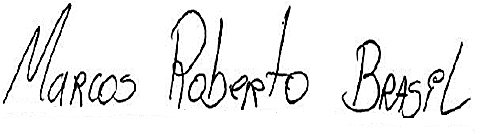 Marcos Roberto Brasil